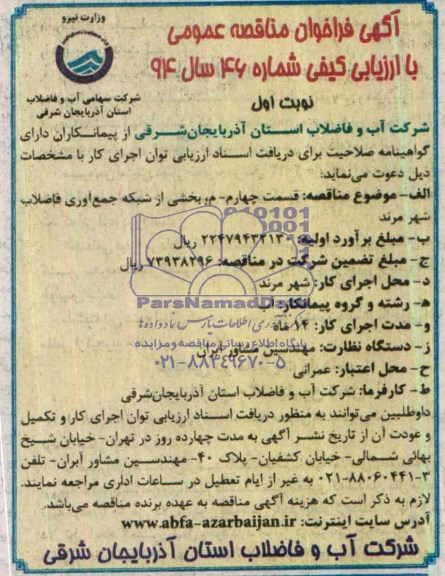 وزارت نیرو
شرکت سهامی آب و فاضلاب
استان آذربایجان شرقی
آگهی فراخوان مناقصه عمومی
با ارزیابی کیفی شماره ۴۶ سال ۹۴
نوبت اول
شرکت آب و فاضلاب استان آذربایجان‌شرقی از پیمانکاران دارای
گواهینامه صلاحیت برای دریافت اسناد ارزیابی توان اجرای کار با مشخصات
ذیل دعوت می‌نماید:
الف- موضوع مناقصه: قسمت چهارم- م، بخشی از شبکه جمع‌آوری فاضلاب
شهر مرند
ب- مبلغ برآورد اولیه: ریال
ج- مبلغ تضمین شرکت در مناقصه: ۷۳۹۳۸۲۹۶ ریال
د- محل اجرای کار: شهر مرند
ه- رشته و گروه پیمانکار: آب
و- مدت اجرای کار: ۱۴ ماه
ز- دستگاه نظارت: مهندسین مشاور آبران
ح- محل اعتبار: عمرانی
ط- کارفرما: شرکت آب و فاضلاب استان آذربایجان‌شرقی
داوطلبین می‌توانند به منظور دریافت اسناد ارزیابی توان اجرای کار و تکمیل
و عودت آن از تاریخ نشر آگهی به مدت چهارده روز در تهران- خیابان شیخ
بهائی شمالی- خیابان کشفیان- پلاک ۴۰- مهندسین مشاور آبران- تلفن
۰۲۱-۸۸۰۶۰۴۴۱-۳ به غیر از ایام تعطیل در ساعات اداری مراجعه نمایند.
لازم به ذکر است که هزینه آگهی مناقصه به عهده برنده مناقصه می‌باشد.
آدرس سایت اینترنت: www.abfa-azarbaijan.ir
شرکت آب و فاضلاب استان آذربایجان شرقی
ParsNamadData
پایگاه اطلاع رسانی مناقصه و مزایده
۰۲۱-۸۸۳۴۹۶۷۰-۵